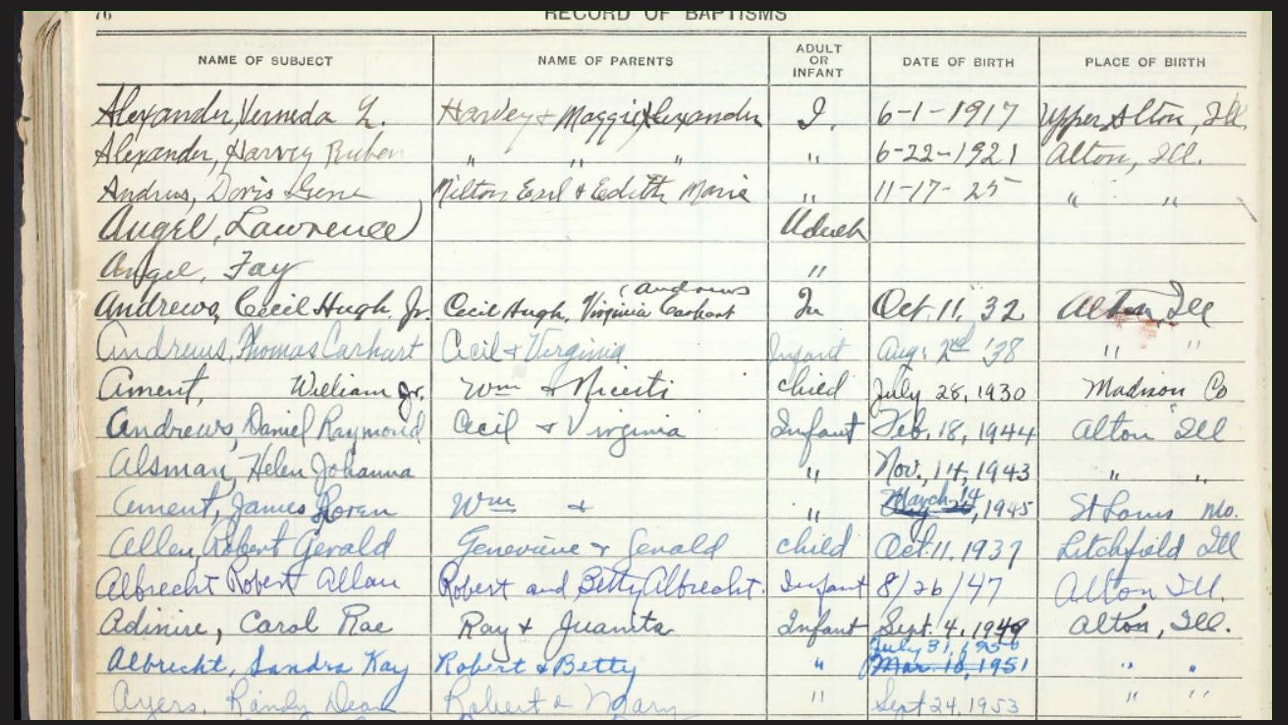 76
RECORD OF BAPTISMS
NAME OF SUBJECT NAME OF PARENTS ADULT OR INFANT DATE OF BIRTH PLACE OF BIRTH
Alexander, Verneda L. Harvey + Maggie Alexander I. 6-1-1917 Upper Alton, Ill.
Alexander, Harvey Ruben " " " " 6-22-1921 Alton, Ill.
Andrus, Doris Gene Milton Earl & Edith Marie " 11-17-25 " "
Angel, Lawrence Adult
Angel, Fay "
Andrews
Andrews, Cecil Hugh, Jr. Cecil Hugh, Virginia Carhart In Oct. 11, 32 Alton, Ill
Andrews, Thomas Carhart Cecil & Virginia Infant Aug. 2nd '38 " "
Ament, William Jr. Wm & child July 28, 1930 Madison Co
Andrews, Daniel Raymond Cecil & Virginia Infant Feb. 18, 1944 Alton Ill
Alsman, Helen Johanna " Nov. 14, 1943 " "
March 14
Ament, James Loren Wm & " , 1945 St Louis Mo.
Allen, Robert Gerald Genevieve & Gerald child Oct. 11. 1937 Litchfield Ill
Albrecht Robert Allan Robert and Betty Albrecht. Infant 8/26/47 Alton Ill.
Adinire, Carol Rae Ray & Juanita Infant Sept. 4, 1949 Alton, Ill.
July 31, 1950
Albrecht, Sandra Kay Robert & Betty " Mar. 18, 1951 " "
Ayers, Randy Dean Robert & Mary " Sept 24, 1953 " "